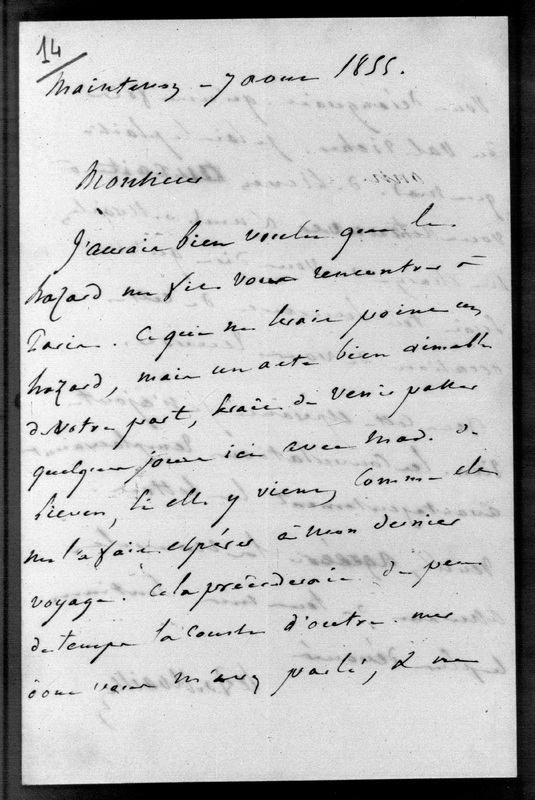 14
Maintenon - 7 aout 1855.
Monsieur
J'aurais bien voulu que le
hazard me fit vous rencontrer à
Paris. Ce qui ne serait point un
hazard, mais un acte bien aimable
de votre part, serait de venir passer
quelques jours ici avec Mad. de
Lieven, si elle y vient, comme elle
me l'a fait espérer à mon dernier
voyage. Cela précéderait de peu
de temps la course d'outre mer
dont vous m'avez parlé, & ne